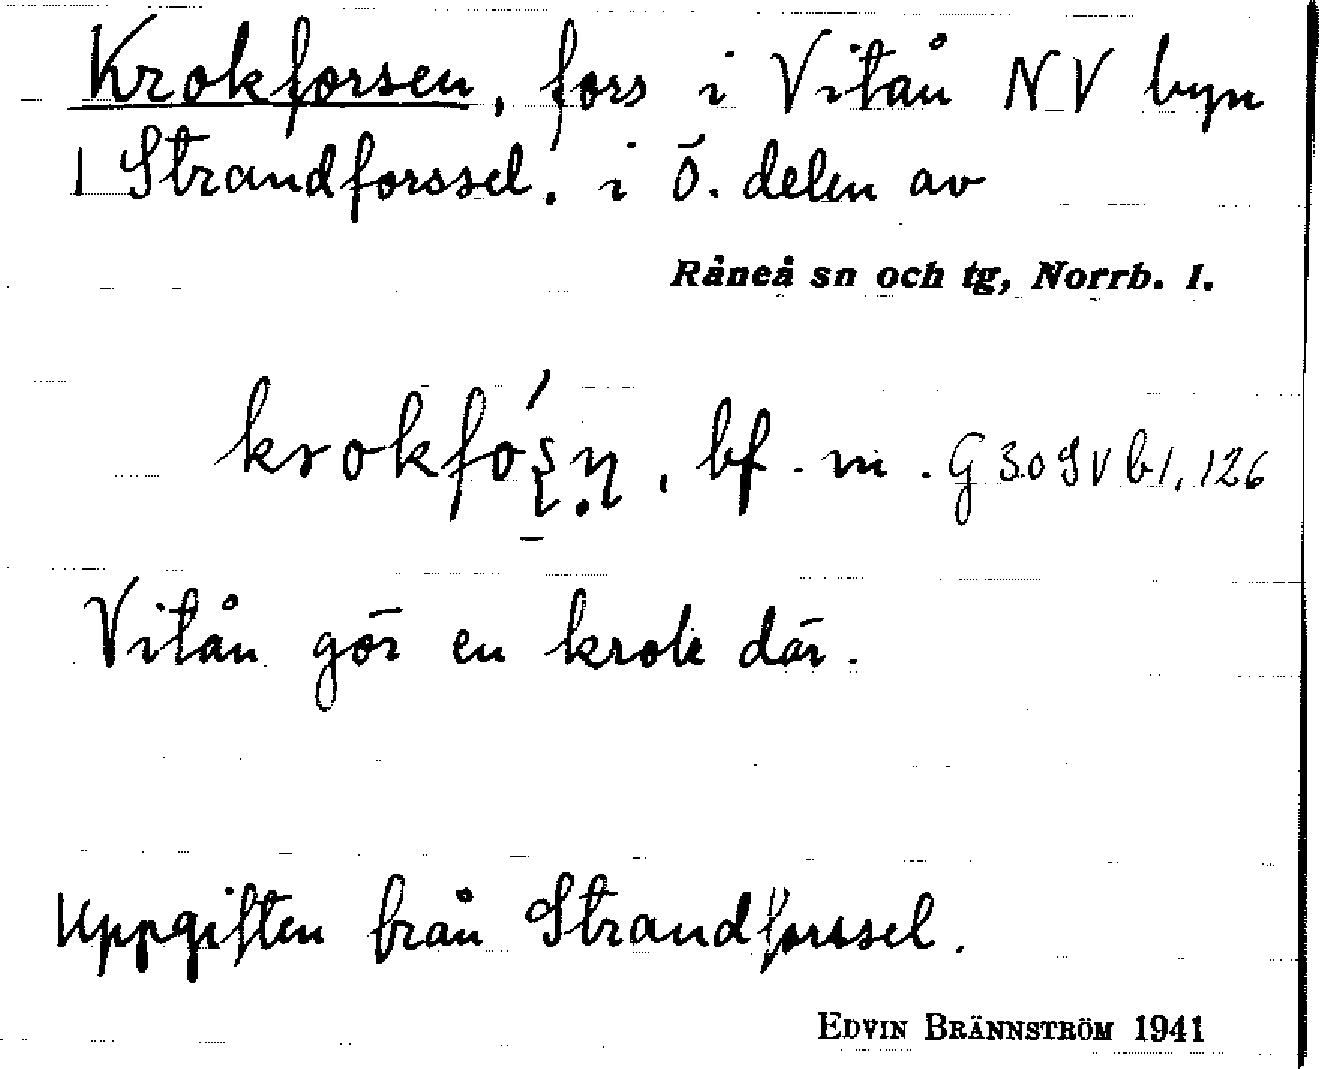 Krokforsen, fors i Vitån NV byn
Strandforssel, i ö. delen av
Råneå sn och tg, Norrb. l.
bf. m. G 30 SV b 1, 126
Vitån gör en krok där.
Uppgiften från Strandforssel.
EDVIN BRÄNNSTRÖM 1941